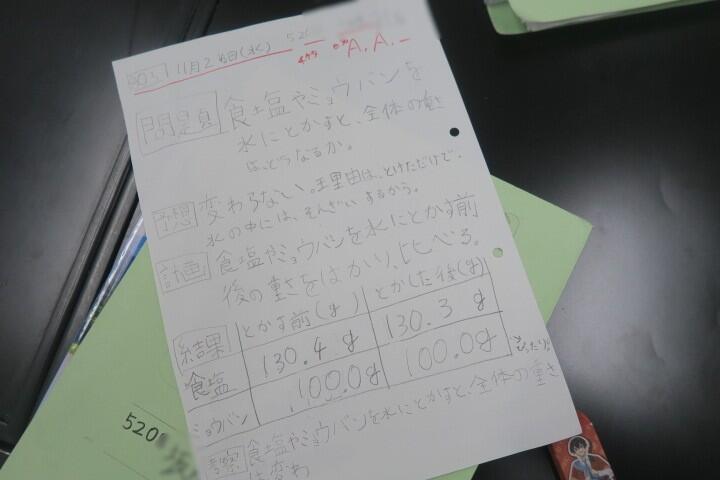 11月26日(水)
A.A.
問題 食塩やミョウバンを
水にとかすと、全体の重さ
は、どうなるか。
予想 変わらない。理由は、とけただけで、
水の中には、そんざいするから。
計画 食塩やミョウバンを水にとかす前
後の重さをはかり、比べる。
結果 とかす前(g) とかした後(g)
食塩 130.4g 130.3g
ミョウバン 100.0g 100.0g ぴったり!
考察 食塩やミョウバンを水にとかすと、全体の重さ
は変わ
520